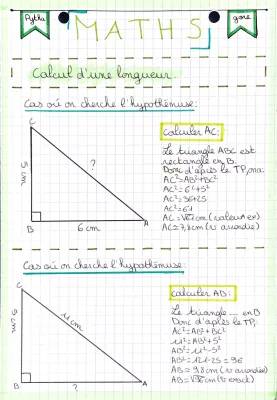 Pytha
MATHS
gore
Calcul d'une longueur.
Cas où on cherche l'hypothénuse:
C
5 cm
?
B
6 cm
A
calculer AC:
Le triangle ABC est
rectangle en B.
Donc d'après le TP, on a:
AC²=AB²+BC²
AC²=6²+5²
AC²=36+25
AC²=61
AC=√61 cm (valeur ex)
AC≈7,8cm (v arrondie)
Cas où on cherche l'hypothénuse:
C
11 cm
B
?
A
calculer AB:
Le triangle ... en B
Donc d'après le TP,
AC²=AB²+BC²
11²=AB²+5²
AB²=11²-5²
AB²=121-25=96
AB≈9,8cm (v arrondie)
AB=√96 cm (v exact)